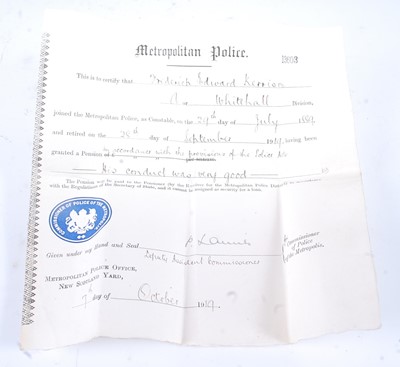 Metropolitan Police.
This is to certify that Frederick Edward
A or Whitehall Division,
joined the Metropolitan Police, as Constable, on the day of July
and retired on the day of September 19 having been
granted a Pension in accordance with the provisions of the Police Act
His conduct was very good
The Pension will be paid to the Pensioner by the Receiver for the Metropolitan Police District
with the Regulations of the Secretary of State, and it cannot be assigned as security for a loan.
COMMISSIONER OF POLICE OF THE METROPOLIS
Given under my Hand and Seal
Commissioner
of Police
of the Metropolis.
METROPOLITAN POLICE OFFICE,
NEW SCOTLAND YARD,
day of October 19